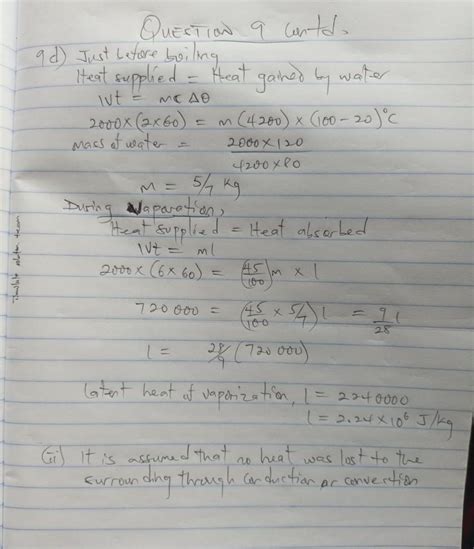 QUESTION 9 Contd.
9d) Just before boiling
Heat supplied = Heat gained by water
IVt = mcΔθ
2000×(2×60) = m(4200)×(100-20)°C
Mass of water = 2000×120
4200×80
m = 5/7 kg
During Vaporation,
Heat supplied = Heat absorbed
IVt = ml
2000×(6×60) = (45/100)m × l
720000 = (45/100 × 5/7) l = 9/28 l
l = 28/9 (720000)
Latent heat of vaporization, l = 2240000
l = 2.24×10⁶ J/kg
(ii) It is assumed that no heat was lost to the
surrounding through conduction or convection